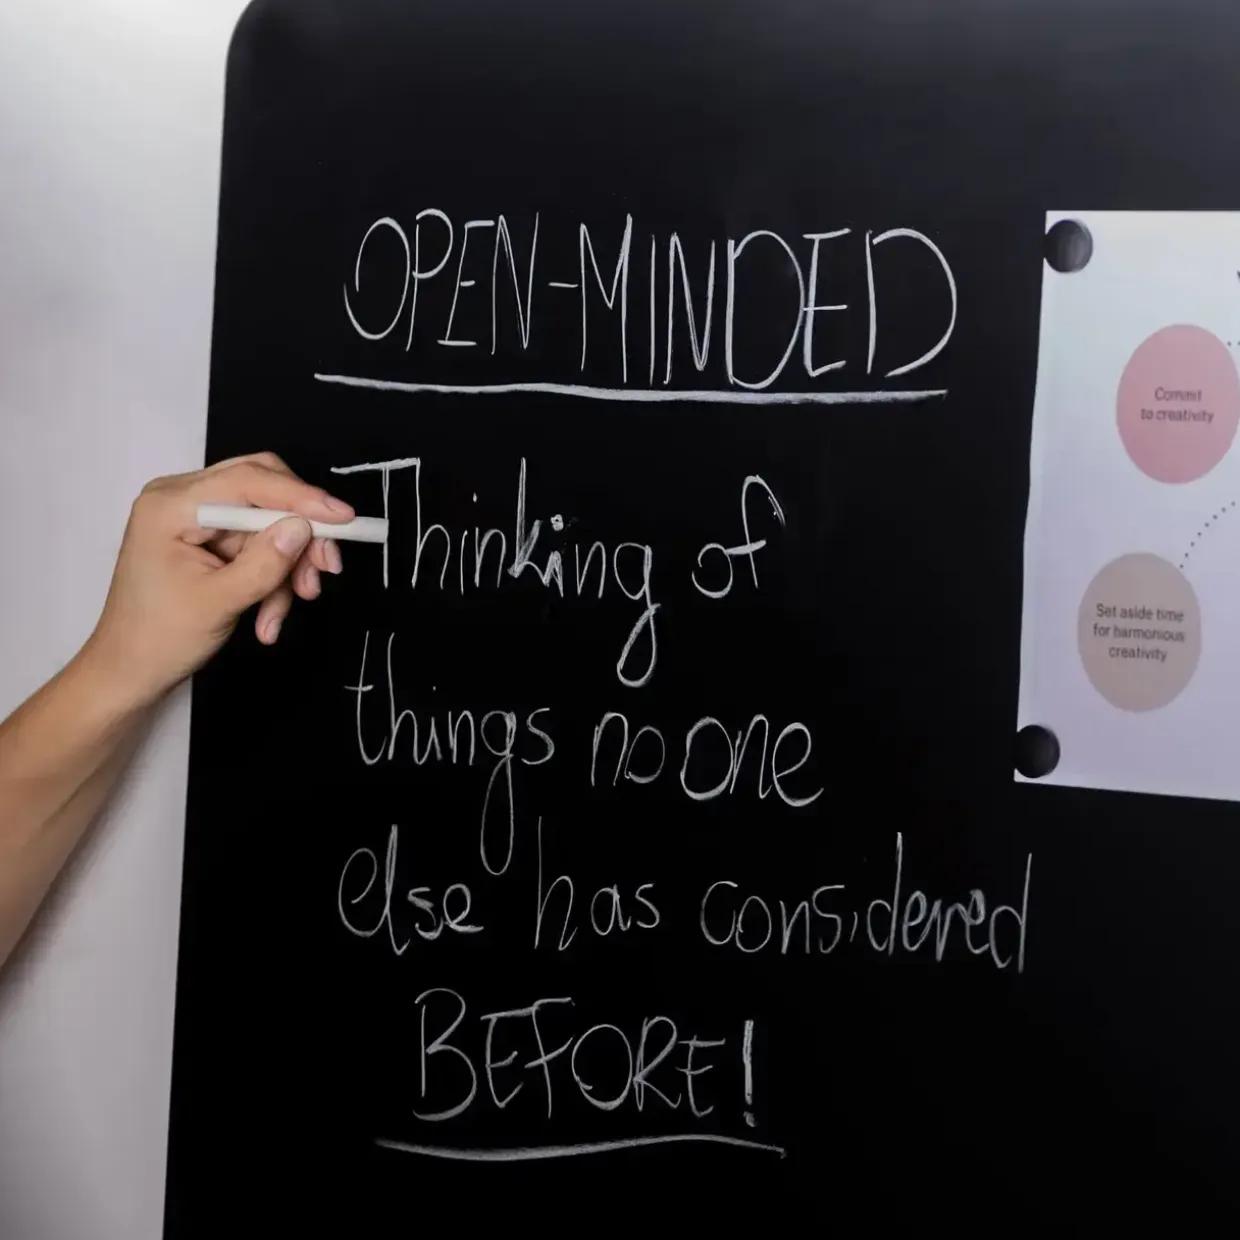 OPEN-MINDED
Thinking of
things no one
else has considered
BEFORE!
Commit
to creativity
Set aside time
for harmonious
creativity